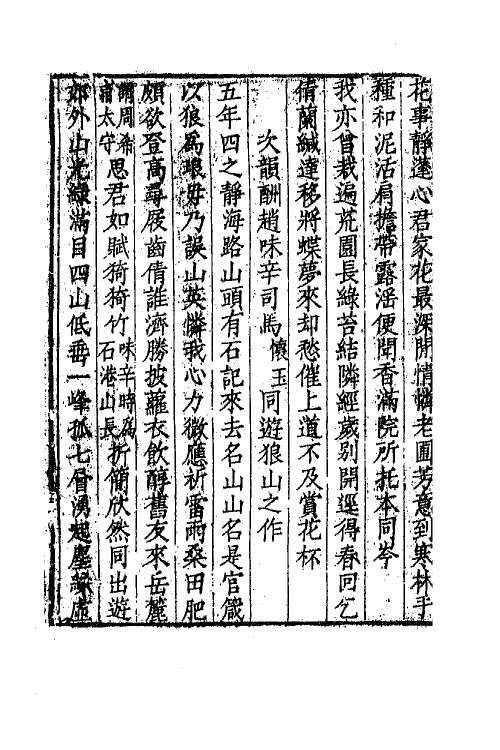 花事靜逢心君家花最深閒情憐老圃芳意到寒林手
種和泥活肩擔帶露滛便聞香滿院所托本同岑
我亦曾栽遍荒園長綠苔結隣經歲别開逕得春回乞
倩蘭緘達移將蝶夢來却愁催上道不及賞花杯
次韻酬趙味辛司馬懷玉同遊狼山之作
五年四之靜海路山頭有石記來去名山山名是官箴
以狼爲琅毋乃誤山英憐我心力微應祈雷雨桑田肥
頗欲登高尋屐齒倩誰濟勝披蘿衣飲醇舊友來岳麓
謂周希甫太守思君如賦猗猗竹味辛時爲石港山長折簡欣然同出遊
郊外山光綠滿目四山低垂一峰孤七層湧起塵